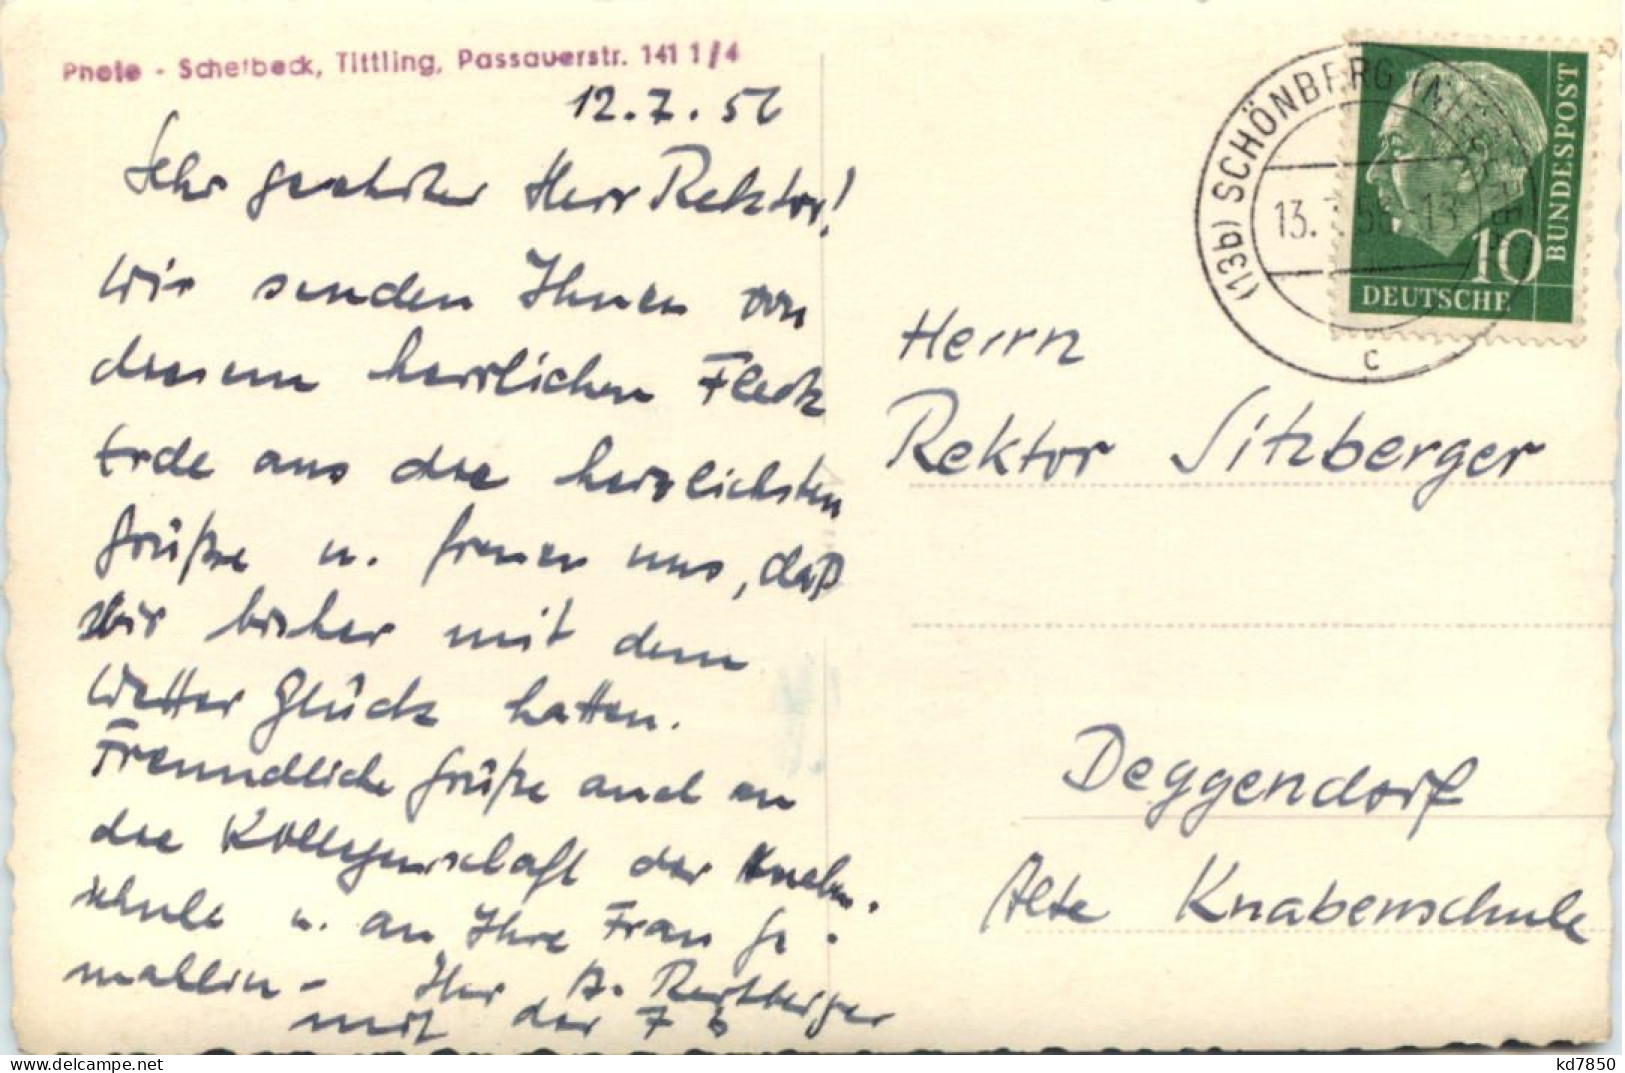 Photo - Scherbeck, Tittling, Passauerstr. 141 1/4
12.7.56
Sehr geehrter Herr Rektor!
Wir senden Ihnen von
diesem herrlichen Fleck
Erde aus die herzlichsten
Grüße u. freuen uns, daß
wir bisher mit dem
Wetter Glück hatten.
Freundliche Grüße auch an
die Kollegenschaft der Knaben-
schule u. an Ihre Frau Ge-
mahlin - Ihr A.
mit der 7b
(13b) SCHÖNBERG
13. 56 -13
c
10
BUNDESPOST
DEUTSCHE
Herrn
Rektor Sitzberger
Deggendorf
Alte Knabenschule
kd7850